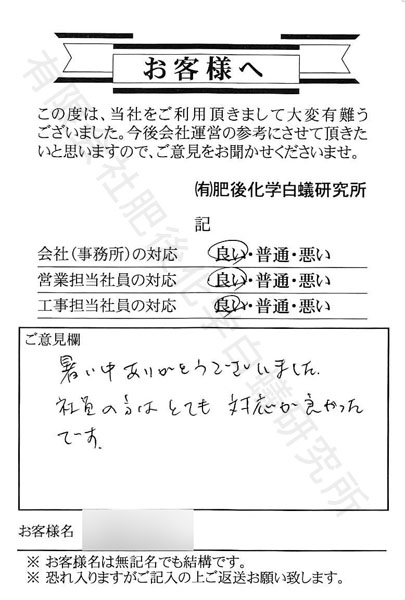 お客様へ
この度は、当社をご利用頂きまして大変有難う
ございました。今後会社運営の参考にさせて頂きた
いと思いますので、ご意見をお聞かせくださいませ。
㈲肥後化学白蟻研究所
記
会社(事務所)の対応 良い・普通・悪い
営業担当社員の対応 良い・普通・悪い
工事担当社員の対応 良い・普通・悪い
ご意見欄
暑い中ありがとうございました.
社員の方はとても対応が良かった
です.
お客様名
※ お客様名は無記名でも結構です。
※ 恐れ入りますがご記入の上ご返送お願い致します。
有限会社肥後化学白蟻研究所